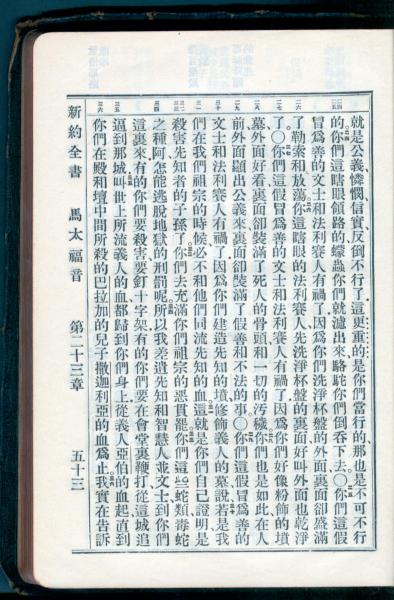 就是公義、憐憫、信實、反倒不行了、這更重的是你們當行的、那也是不可不行
的、你們這瞎眼領路的、蠓蟲你們就濾出來、駱駝你們倒吞下去、〇你們這假
冒爲善的文士和法利賽人有禍了、因爲你們洗淨杯盤的外面、裏面卻盛滿
了勒索和放蕩、你這瞎眼的法利賽人、先洗淨杯盤的裏面、好叫外面也乾淨
了、〇你們這假冒爲善的文士和法利賽人有禍了、因爲你們好像粉飾的墳
墓、外面好看、裏面卻裝滿了死人的骨頭和一切的污穢、你們也是如此、在人
前外面顯出公義來、裏面卻裝滿了假善和不法的事、〇你們這假冒爲善的
文士和法利賽人有禍了、因爲你們建造先知的墳、修飾義人的墓、說、若是我
們在我們祖宗的時候、必不和他們同流先知的血、這就是你們自己證明是
殺害先知者的子孫了、你們去充滿你們祖宗的惡貫罷、你們這些蛇類、毒蛇
之種阿、怎能逃脫地獄的刑罰呢、所以我差遣先知和智慧人並文士到你們
這裏來、有的你們要殺害、要釘十字架、有的你們要在會堂裏鞭打、從這城追
逼到那城、叫世上所流義人的血、都歸到你們身上、從義人亞伯的血起、直到
你們在殿和壇中間所殺的巴拉加的兒子撒迦利亞的血爲止、我實在告訴
新約全書 馬太福音 第二十三章 五十三